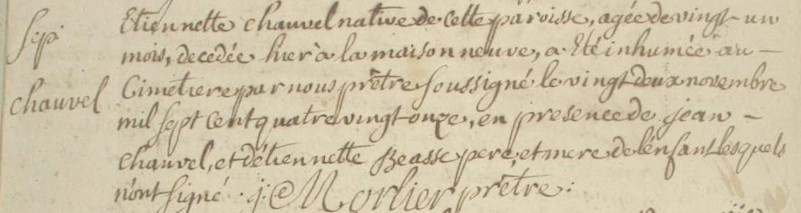 Sepr
Etiennette chauvel native de cette paroisse, agée de vingt-un
mois, decedée hier à la maison neuve, a Eté inhumée au -
chauvel
Cimetiere par nous prêtre soussigné le vingt deux novembre
mil sept cent quatre vingt onze, en presence de jean -
chauvel, et d'étiennette Beasse pere, et mere de l'enfant lesquels
n'ont signé. j: Morlier prêtre: